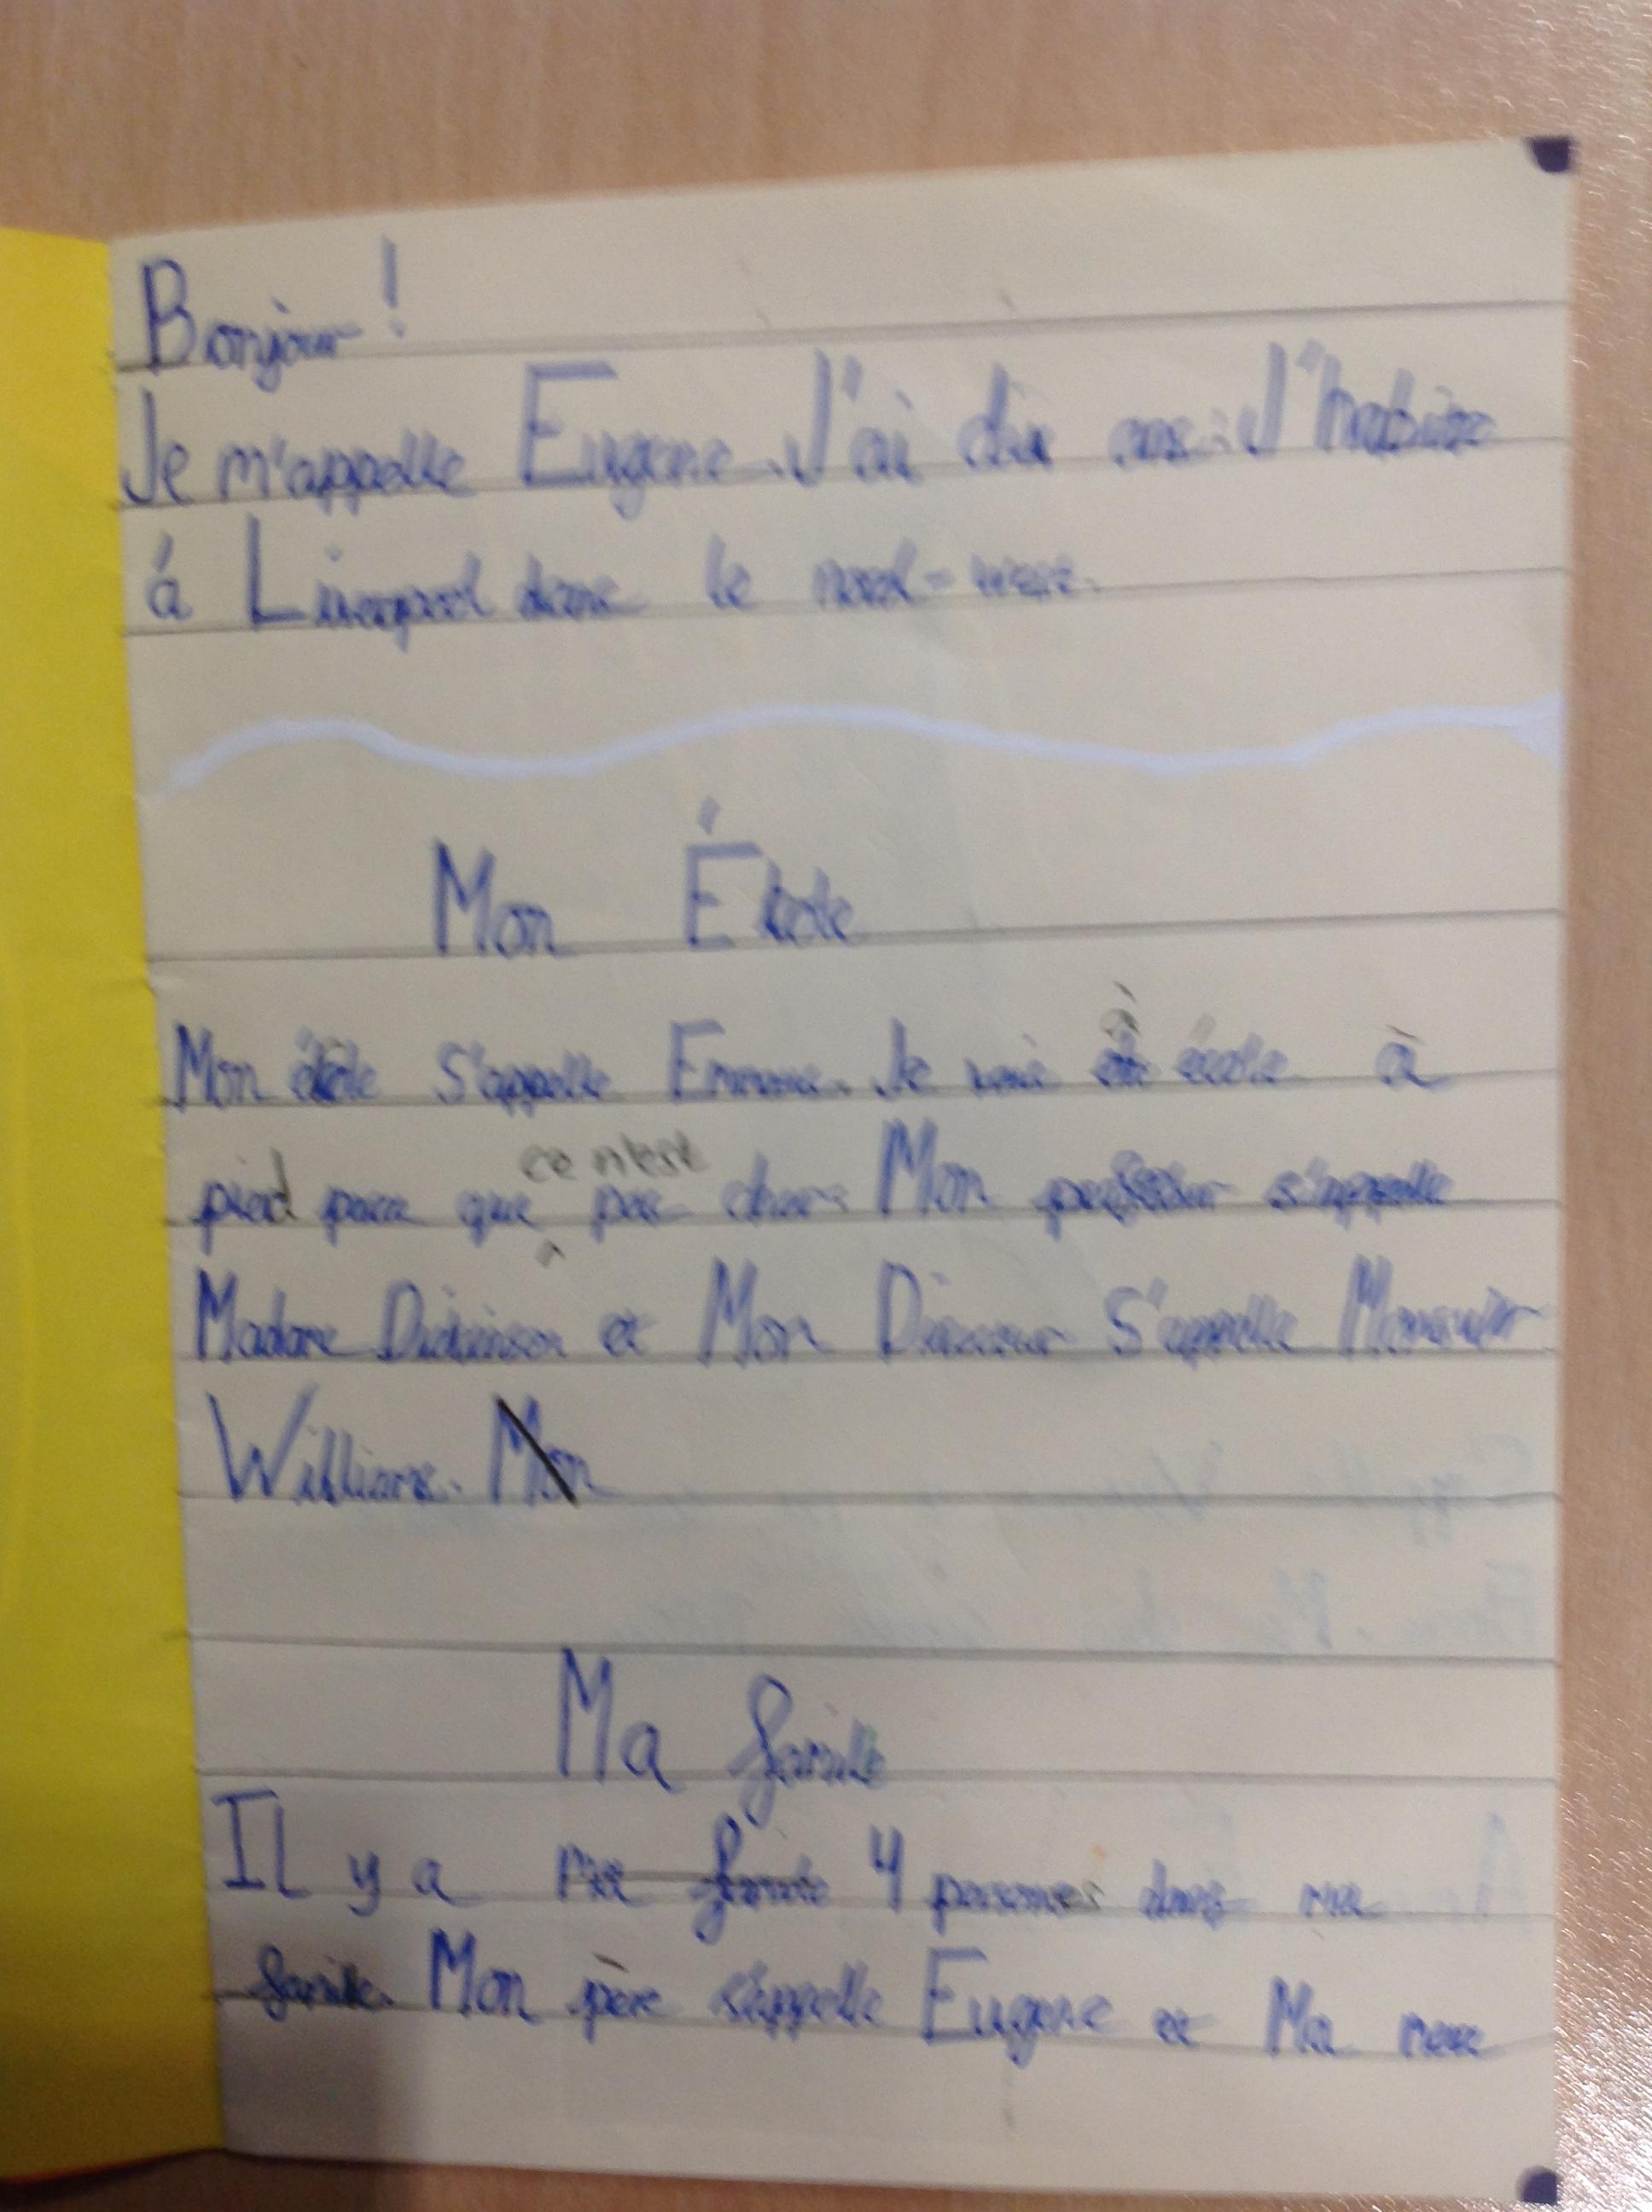 Bonjour!
Je m'appelle Eugene. J'ai dix ans. J'habite
á Liverpool dans le nord-west.
Mon École
Mon école s'appelle Emmaus. Je vais à école à
pied parce que ce n'est pas cher. Mon professeur s'appelle
Madame Dickinson et Mon Directeur s'appelle Monsieur
Williams. Mon
Ma famille
Il y a ma famille 4 personnes dans ma
famille. Mon père s'appelle Eugene et Ma mere